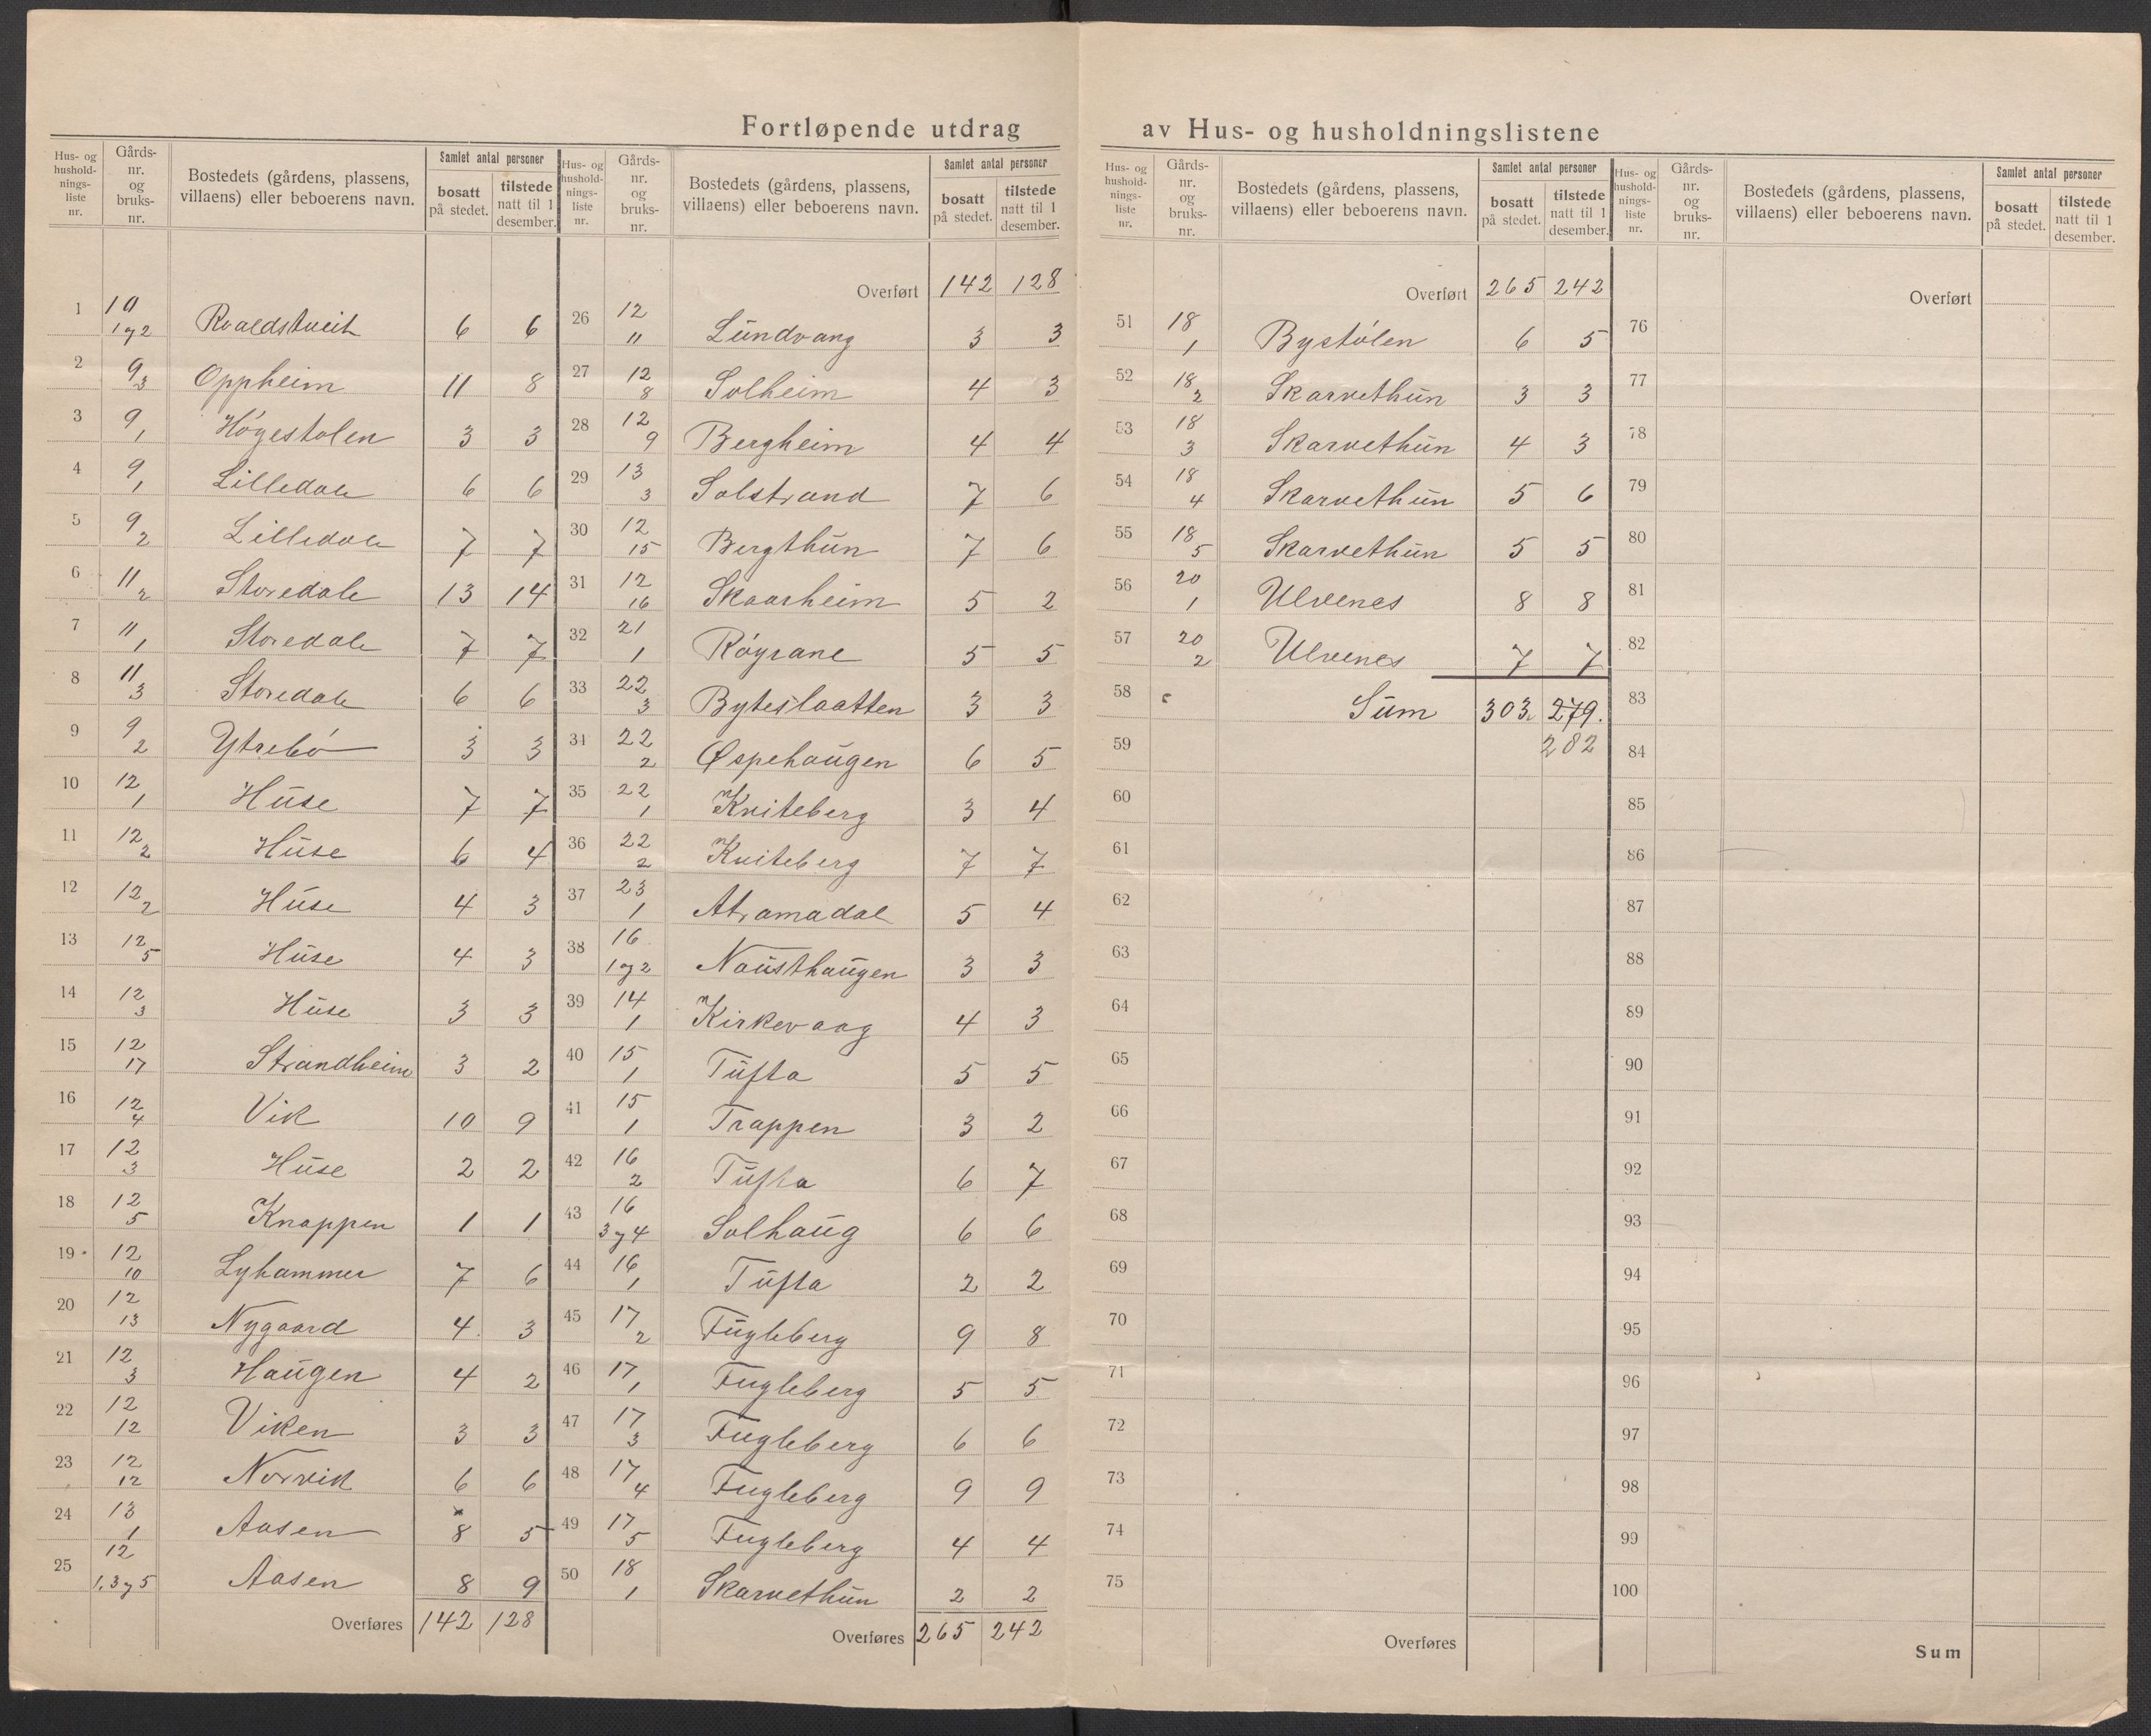 Fortløpende utdrag av Hus- og husholdningslistene
Hus- og hushold-nings-liste nr. | Gårds-nr. og bruks-nr. | Bostedets (gårdens, plassens, villaens) eller beboerens navn. | Samlet antal personer | bosatt på stedet. | tilstede natt til 1 desember.
1 10 1 og 2 Roaldstveit 6 6
2 9 3 Oppheim 11 8
3 9 1 Høgestolen 3 3
4 9 1 Lilledale 6 6
5 9 2 Lilledale 7 7
6 11 2 Storedale 13 14
7 11 1 Storedale 7 7
8 11 3 Storedale 6 6
9 9 2 Ytrebø 3 3
10 12 1 Huse 7 7
11 12 2 Huse 6 4
12 12 2 Huse 4 3
13 12 5 Huse 4 3
14 12 3 Huse 3 3
15 12 17 Strandheim 3 2
16 12 4 Vik 10 9
17 12 3 Huse 2 2
18 12 5 Knappen 1 1
19 12 10 Lyhammer 7 6
20 12 13 Nygaard 4 3
21 12 3 Haugen 4 2
22 12 12 Viken 3 3
23 12 12 Norvik 6 6
24 13 1 Aasen 8 5
25 12 1, 3 og 5 Aasen 8 9
Overføres 142 128
Hus- og hushold-nings-liste nr. | Gårds-nr. og bruks-nr. | Bostedets (gårdens, plassens, villaens) eller beboerens navn. | Samlet antal personer | bosatt på stedet. | tilstede natt til 1 desember.
Overført 142 128
26 12 11 Lundvang 3 3
27 12 8 Solheim 4 3
28 12 9 Bergheim 4 4
29 13 3 Solstrand 7 6
30 12 15 Bergthun 7 6
31 12 16 Skaarheim 5 2
32 21 1 Røyrane 5 5
33 22 3 Byteslaatten 3 3
34 22 2 Øspehaugen 6 5
35 22 1 Kviteberg 3 4
36 22 2 Kviteberg 7 7
37 23 1 Atramadal 5 4
38 16 1 og 2 Nausthaugen 3 3
39 14 1 Kirkevaag 4 3
40 15 1 Tufta 5 5
41 15 1 Trappen 3 2
42 16 2 Tufta 6 7
43 16 3 og 4 Solhaug 6 6
44 16 1 Tufta 2 2
45 17 2 Fugleberg 9 8
46 17 1 Fugleberg 5 5
47 17 3 Fugleberg 6 6
48 17 4 Fugleberg 9 9
49 17 5 Fugleberg 4 4
50 18 1 Skarvethun 2 2
Overføres 265 242
Hus- og hushold-nings-liste nr. | Gårds-nr. og bruks-nr. | Bostedets (gårdens, plassens, villaens) eller beboerens navn. | Samlet antal personer | bosatt på stedet. | tilstede natt til 1 desember.
Overført 265 242
51 18 1 Bystølen 6 5
52 18 2 Skarvethun 3 3
53 18 3 Skarvethun 4 3
54 18 4 Skarvethun 5 6
55 18 5 Skarvethun 5 5
56 20 1 Ulvenes 8 8
57 20 2 Ulvenes 7 7
58 Sum 303. 279.
59 282
60
61
62
63
64
65
66
67
68
69
70
71
72
73
74
75
Overføres
Hus- og hushold-nings-liste nr. | Gårds-nr. og bruks-nr. | Bostedets (gårdens, plassens, villaens) eller beboerens navn. | Samlet antal personer | bosatt på stedet. | tilstede natt til 1 desember.
Overført
76
77
78
79
80
81
82
83
84
85
86
87
88
89
90
91
92
93
94
95
96
97
98
99
100
Sum